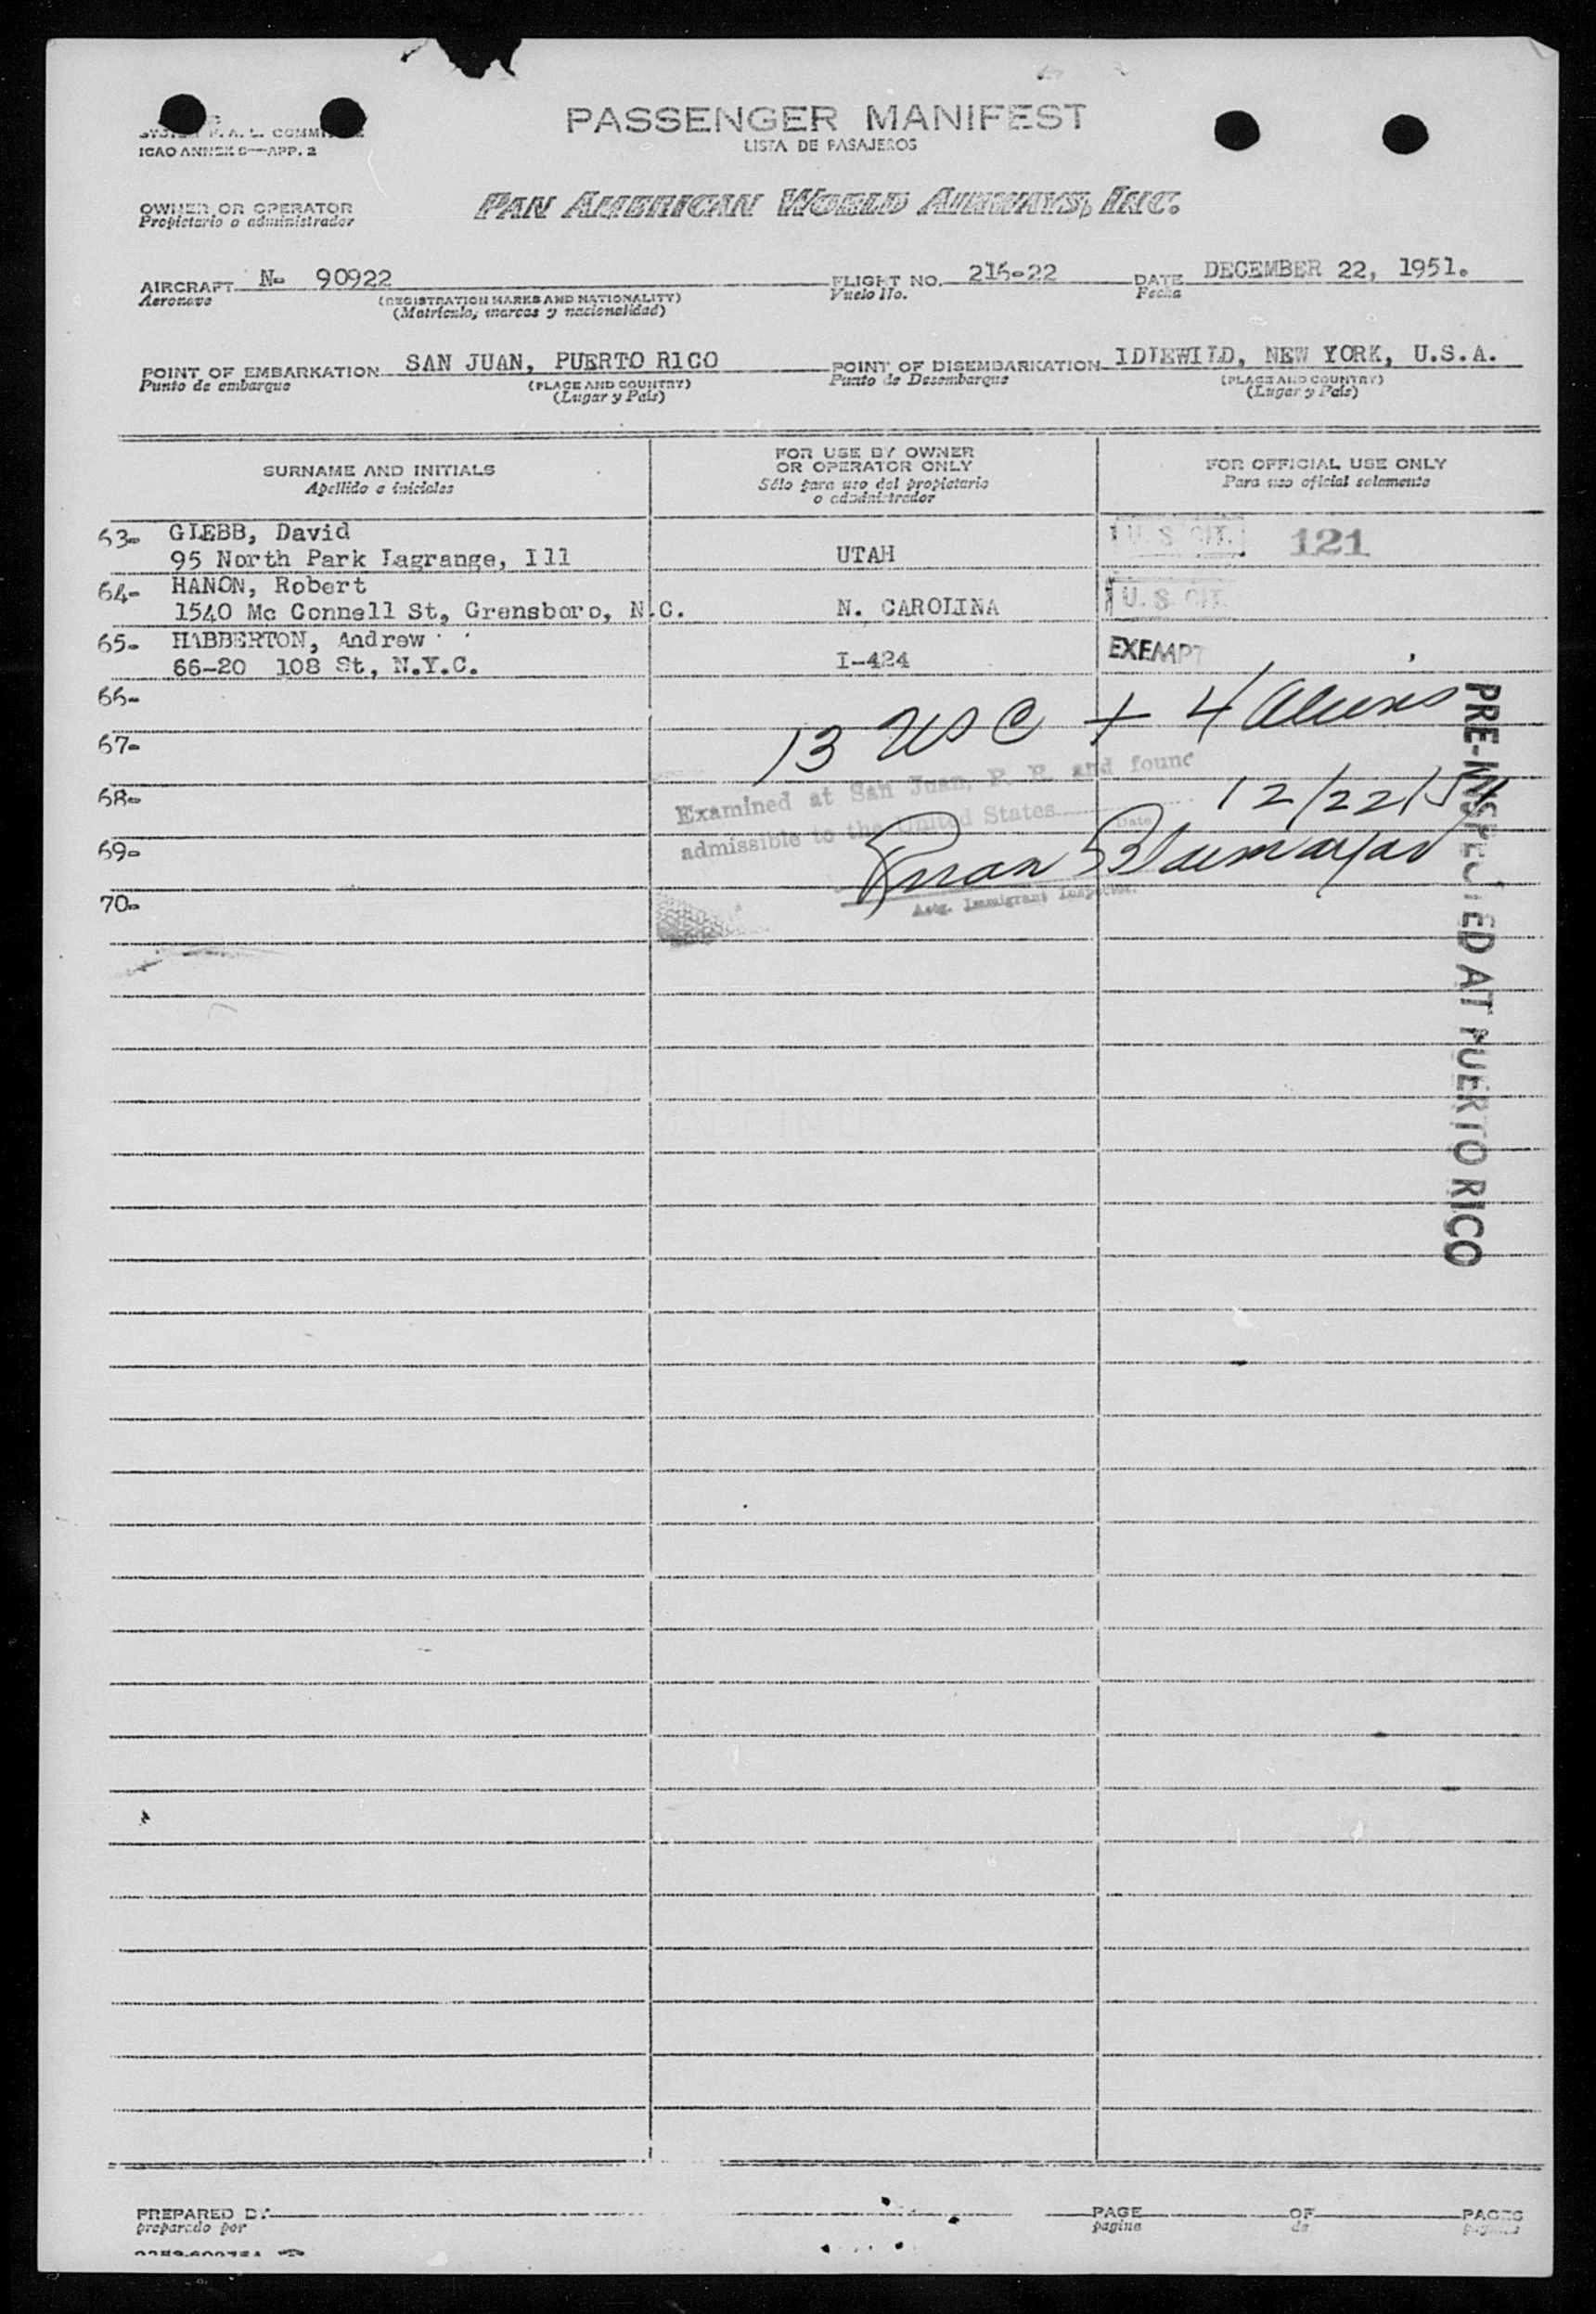 PASSENGER MANIFEST
LISTA DE PASAJEROS
ICAO ANNEX 9—APP. 2
OWNER OR OPERATOR
Propietario o administrador
PAN AMERICAN WORLD AIRWAYS, INC.
AIRCRAFT N- 90922 FLIGHT NO. 216-22 DATE DECEMBER 22, 1951.
Aeronave (REGISTRATION MARKS AND NATIONALITY) Vuelo No. Fecha
(Matrícula, marcas y nacionalidad)
POINT OF EMBARKATION SAN JUAN, PUERTO RICO POINT OF DISEMBARKATION IDLEWILD, NEW YORK, U.S.A.
Punto de embarque (PLACE AND COUNTRY) Punto de Desembarque (PLACE AND COUNTRY)
(Lugar y País) (Lugar y País)
SURNAME AND INITIALS
Apellido e iniciales
FOR USE BY OWNER
OR OPERATOR ONLY
Sólo para uso del propietario
o administrador
FOR OFFICIAL USE ONLY
Para uso oficial solamente
63- GLEBB, David U. S. CIT. 121
95 North Park Lagrange, Ill UTAH
64- HANON, Robert U. S. CIT.
1540 Mc Connell St, Grensboro, N.C. N. CAROLINA
65- HABBERTON, Andrew EXEMPT
66-20 108 St, N.Y.C. I-424
66-
13 USC + 4 Aliens
67-
Examined at San Juan, P. R. and found
68- 12/22/51
admissible to the United States Date
69-
70-
Actg. Immigrant Inspector.
PRE-INSPECTED AT PUERTO RICO
PREPARED BY PAGE OF PAGES
preparado por pagina de paginas